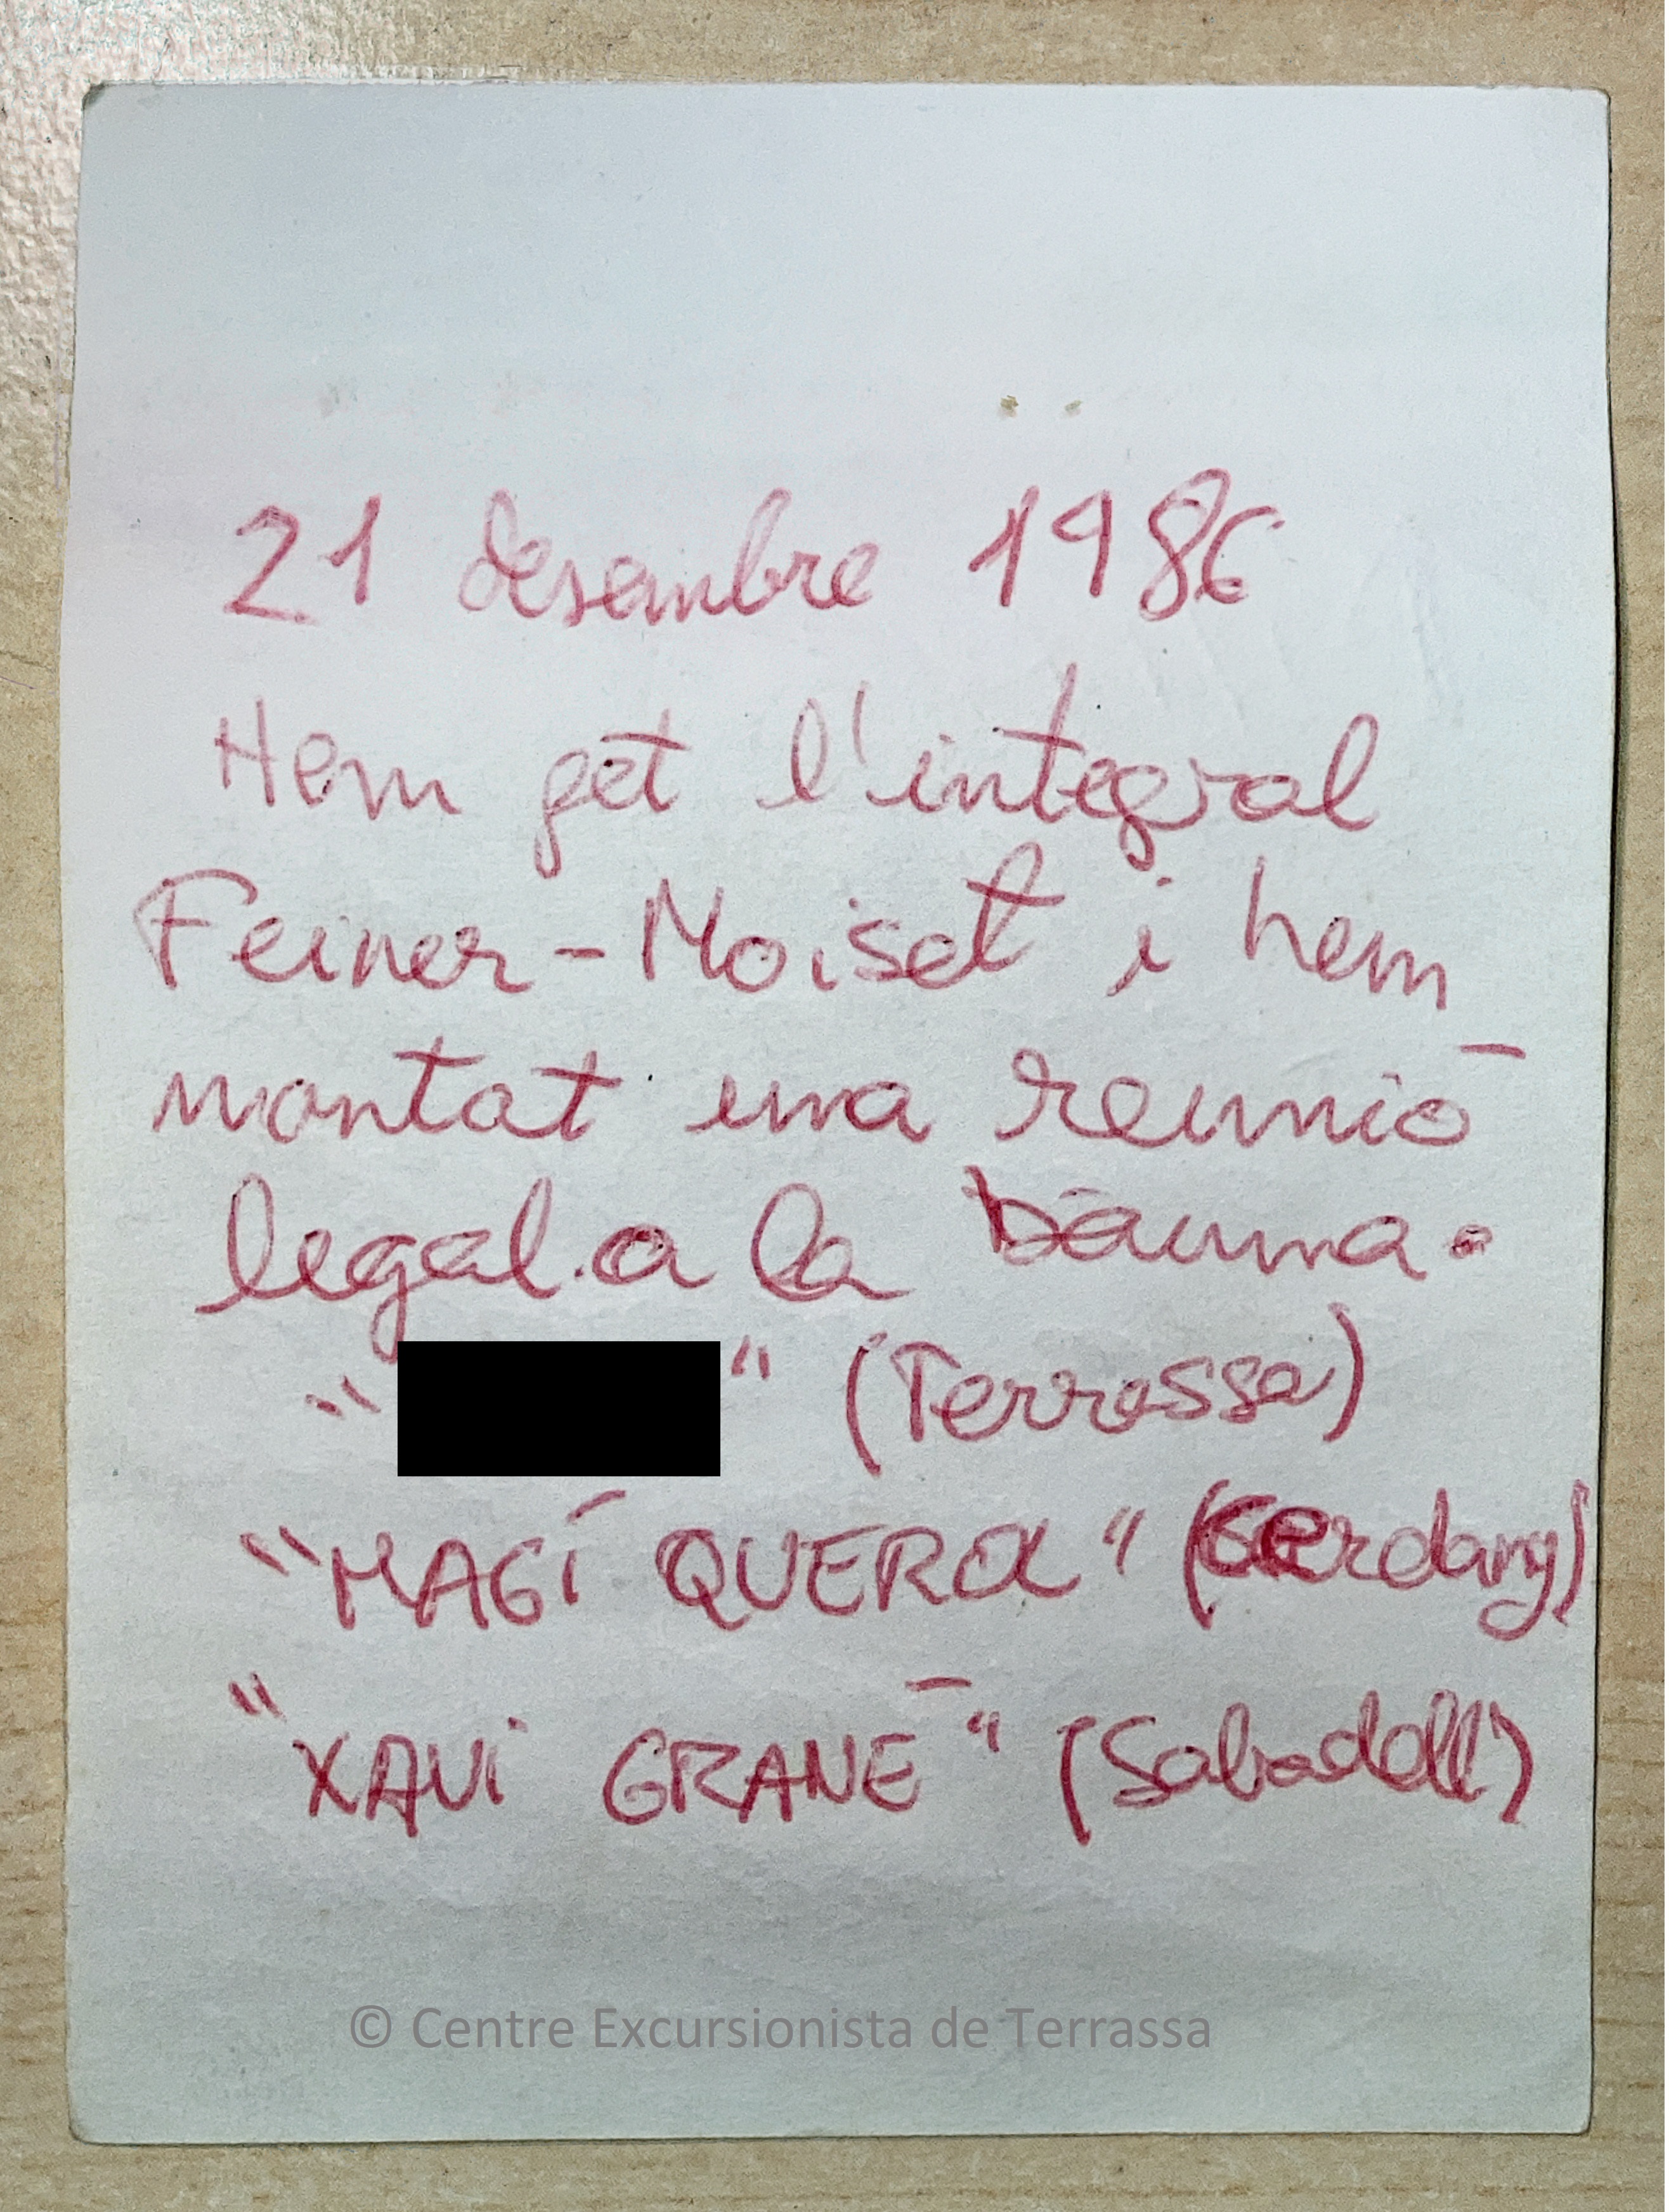 21 desembre 1986
Hem get l'integral
Feiner-Moiset i hem
montat una reunió
legal a la bauma.
" " (Terrassa)
"MAGÍ QUERA" (Cerdany)
"XAVI GRANÉ" (Sabadell)
© Centre Excursionista de Terrassa